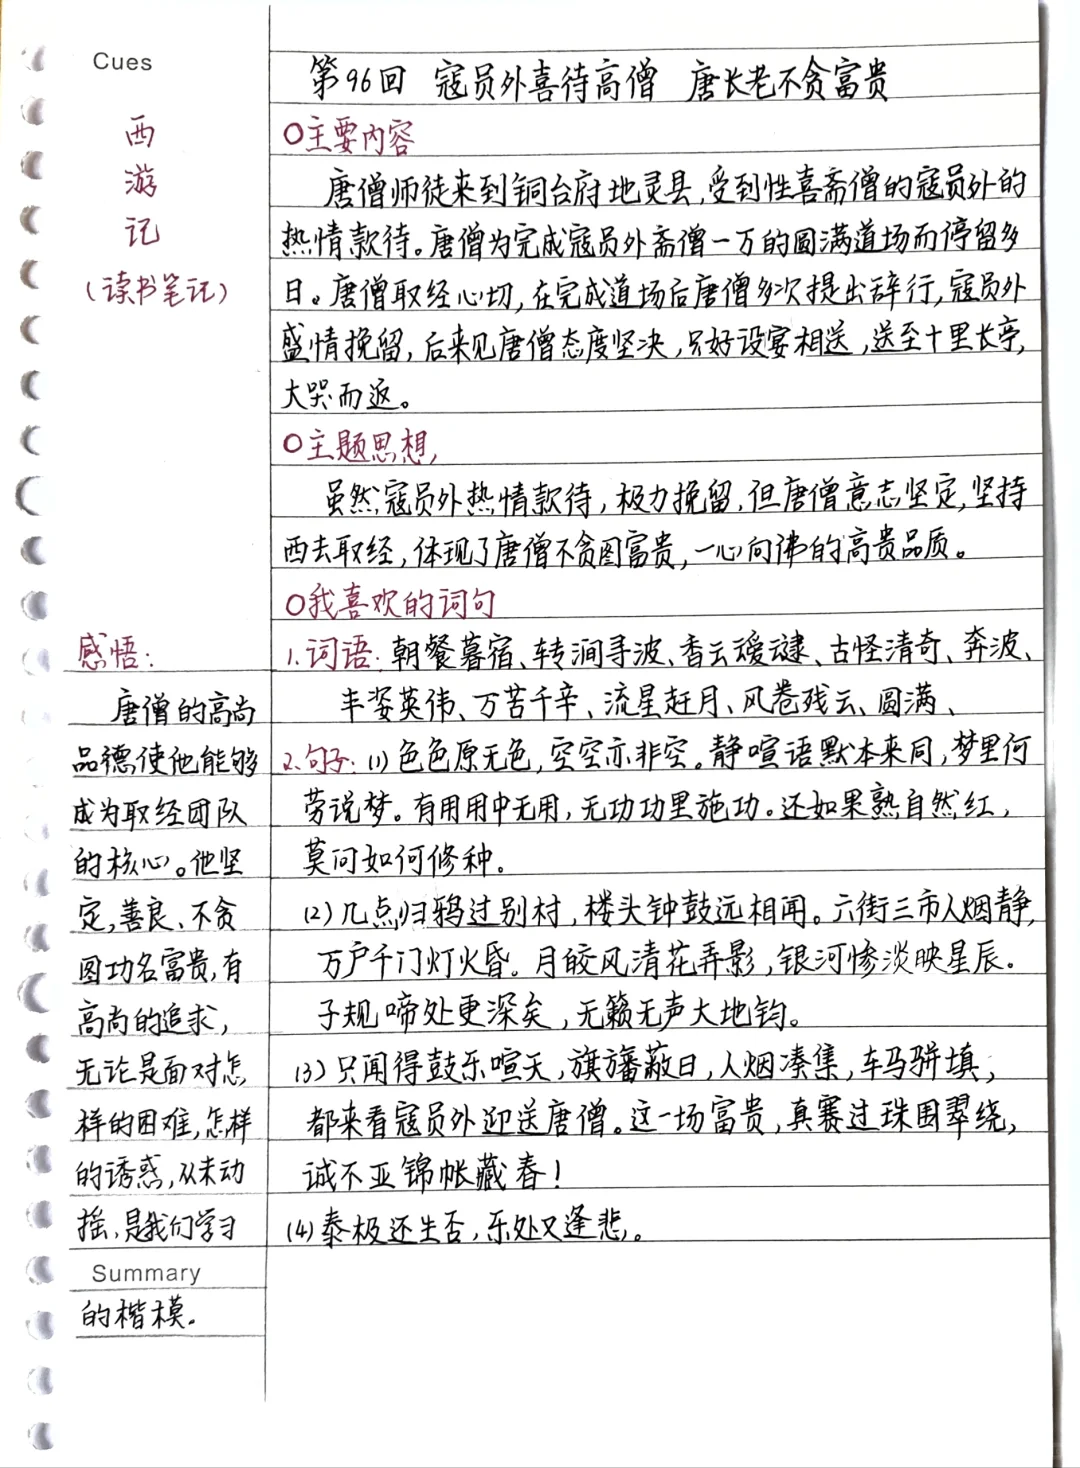 Cues
西
游
记
(读书笔记)
第96回 寇员外喜待高僧 唐长老不贪富贵
○主要内容
唐僧师徒来到铜台府地灵县,受到性喜斋僧的寇员外的
热情款待。唐僧为完成寇员外斋僧一万的圆满道场而停留多
日。唐僧取经心切,在完成道场后唐僧多次提出辞行,寇员外
盛情挽留,后来见唐僧态度坚决,只好设宴相送,送至十里长亭,
大哭而返。
○主题思想
虽然寇员外热情款待,极力挽留,但唐僧意志坚定,坚持
西去取经,体现了唐僧不贪图富贵,一心向佛的高贵品质。
○我喜欢的词句
1.词语:朝餐暮宿、转涧寻波、香云叆叇、古怪清奇、奔波、
丰姿英伟、万苦千辛、流星赶月、风卷残云、圆满、
2.句子:(1)色色原无色,空空亦非空。静喧语默本来同,梦里何
劳说梦。有用用中无用,无功功里施功。还如果熟自然红,
莫问如何修种。
(2)几点归鸦过别村,楼头钟鼓远相闻。六街三市人烟静,
万户千门灯火昏。月皎风清花弄影,银河惨淡映星辰。
子规啼处更深矣,无籁无声大地钧。
(3)只闻得鼓乐喧天,旗旛蔽日,人烟凑集,车马骈填,
都来看寇员外迎送唐僧。这一场富贵,真赛过珠围翠绕,
诚不亚锦帐藏春!
(4)泰极还生否,乐处又逢悲。
感悟:
唐僧的高尚
品德使他能够
成为取经团队
的核心。他坚
定,善良、不贪
图功名富贵,有
高尚的追求,
无论是面对怎
样的困难,怎样
的诱惑,从未动
摇,是我们学习
Summary
的楷模.